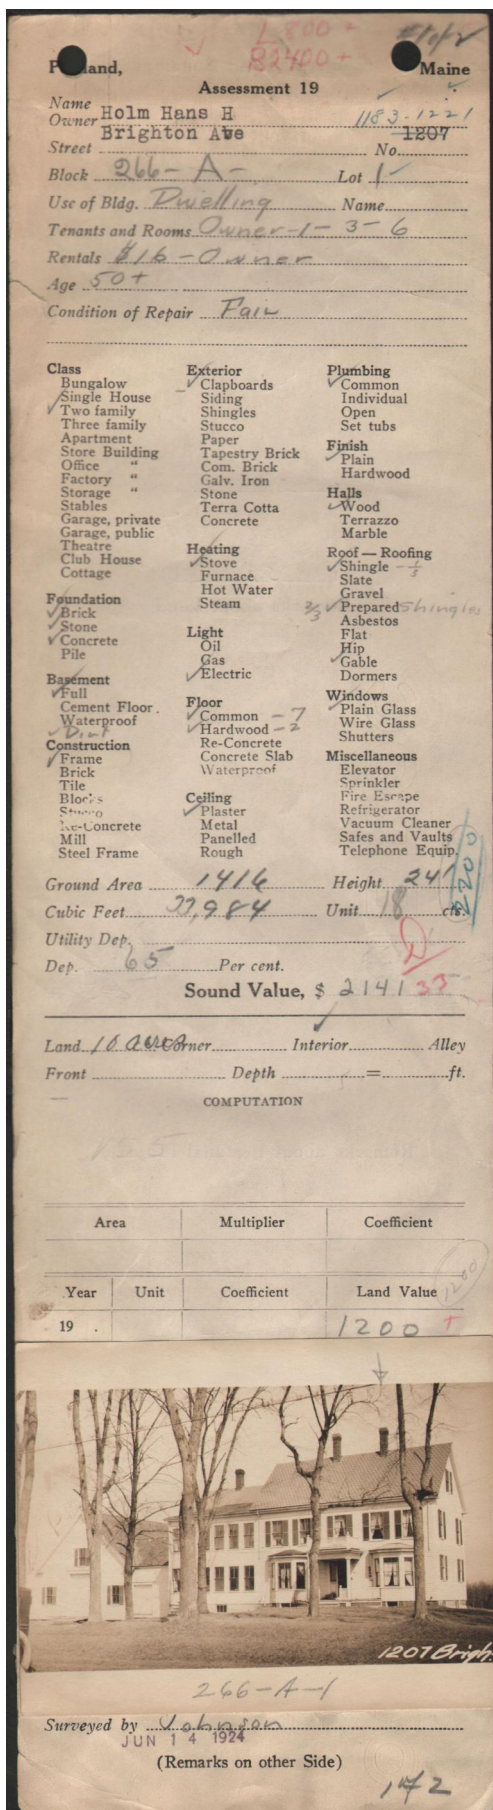 L 800 +
B2400 +
1 of 2
Portland, Maine
Assessment 19
Name
Owner Holm Hans H 1183-1221
Street Brighton Ave No. 1207
Block 266 - A - Lot 1
Use of Bldg. Dwelling Name
Tenants and Rooms Owner - 1 - 3 - 6
Rentals $16 - Owner
Age 50 +
Condition of Repair Fair
Class
Bungalow
✓ Single House
✓ Two family
Three family
Apartment
Store Building
Office "
Factory "
Storage "
Stables
Garage, private
Garage, public
Theatre
Club House
Cottage
Foundation
✓ Brick
✓ Stone
✓ Concrete
Pile
Basement
✓ Full
Cement Floor.
Waterproof
✓ Dirt
Construction
✓ Frame
Brick
Tile
Blocks
Stucco
Re-Concrete
Mill
Steel Frame
Exterior
✓ Clapboards
Siding
Shingles
Stucco
Paper
Tapestry Brick
Com. Brick
Galv. Iron
Stone
Terra Cotta
Concrete
Heating
✓ Stove
Furnace
Hot Water
Steam
Light
Oil
Gas
✓ Electric
Floor
✓ Common - 7
✓ Hardwood - 2
Re-Concrete
Concrete Slab
Waterproof
Ceiling
✓ Plaster
Metal
Panelled
Rough
Plumbing
✓ Common
Individual
Open
Set tubs
Finish
✓ Plain
Hardwood
Halls
✓ Wood
Terrazzo
Marble
Roof — Roofing
✓ Shingle - 1/3
Slate
Gravel
2/3 ✓ Prepared Shingles
Asbestos
Flat
Hip
✓ Gable
Dormers
Windows
✓ Plain Glass
Wire Glass
Shutters
Miscellaneous
Elevator
Sprinkler
Fire Escape
Refrigerator
Vacuum Cleaner
Safes and Vaults
Telephone Equip.
2200
Ground Area 1416 Height 24'
Cubic Feet 33,984 Unit 18 cts.
Utility Dep.
D
Dep. 65 Per cent.
Sound Value, $ 2141 33
Land 10 acres Corner Interior ✓ Alley
Front Depth = ft.
COMPUTATION
Area Multiplier Coefficient
Year Unit Coefficient Land Value
1200
19 . 1200 +
1207 Brigh
266-A-1
Surveyed by Johnson
JUN 14 1924
(Remarks on other Side)